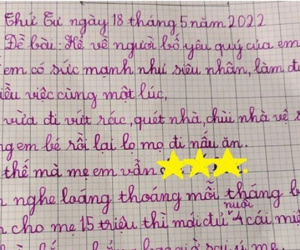 Thứ Tư ngày 18 tháng 5 năm 2022
Đề bài: Kể về người bố yêu quý của em
em có sức mạnh như siêu nhân, làm đ
iều việc cùng một lúc,
vừa đi vứt rác, quét nhà, chùi nhà vệ s
ng em bé rồi lại lo mọ đi nấu ăn.
thế mà mẹ em vẫn
nghe loáng thoáng mỗi tháng b
n cho mẹ 15 triệu thì mới đủ nuôi 4 cái mi